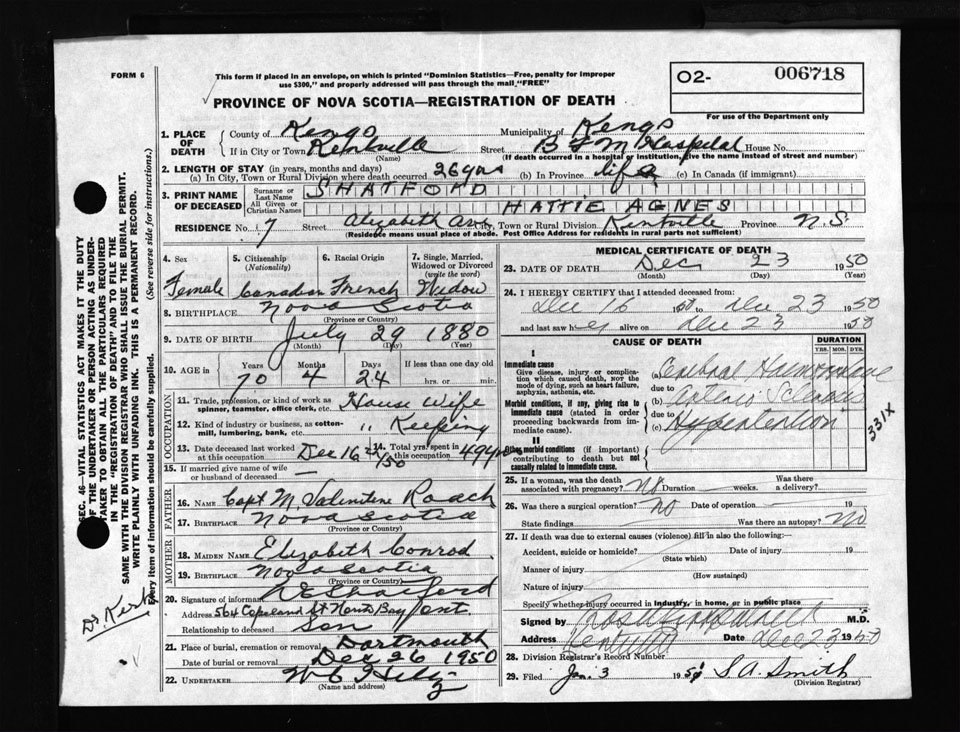 FORM 6
This form if placed in an envelope, on which is printed "Dominion Statistics—Free, penalty for improper
use $300," and properly addressed will pass through the mail "FREE"
O2- 006718
For use of the Department only
PROVINCE OF NOVA SCOTIA—REGISTRATION OF DEATH
1. PLACE OF DEATH
County of Kings Municipality of Kings
If in City or Town Kentville Street B F M Hospital House No.
(Name) (If death occurred in a hospital or institution, give the name instead of street and number)
2. LENGTH OF STAY (in years, months and days)
(a) In City, Town or Rural Division where death occurred 26 yrs (b) In Province life (c) In Canada (if immigrant)
3. PRINT NAME OF DECEASED
Surname or Last Name SHATFORD
All Given or Christian Names HATTIE AGNES
RESIDENCE No. 7 Street Alizabeth Ave City, Town or Rural Division Kentville Province N.S.
(Residence means usual place of abode. Post Office Address for residents in rural parts not sufficient)
4. Sex Female
5. Citizenship (Nationality) Canadian
6. Racial Origin French
7. Single, Married, Widowed or Divorced (write the word) Widow
8. BIRTHPLACE Nova Scotia
(Province or Country)
9. DATE OF BIRTH July 29 1880
(Month) (Day) (Year)
10. AGE in Years Months Days If less than one day old
70 4 24 hrs. or min.
OCCUPATION
11. Trade, profession, or kind of work as spinner, teamster, office clerk, etc. House Wife
12. Kind of industry or business, as cotton-mill, lumbering, bank, etc. " Keeping
13. Date deceased last worked at this occupation Dec 16 /50
14. Total yrs. spent in this occupation 49 yrs
15. If married give name of wife or husband of deceased —
FATHER
16. Name Capt M. Valentine Roach
17. Birthplace Nova Scotia
(Province or Country)
MOTHER
18. MAIDEN NAME Elizabeth Conrad
19. BIRTHPLACE Nova Scotia
(Province or Country)
20. Signature of informant Shatford
Address 564 Copeland St North Bay Ont
Relationship to deceased Son
21. Place of burial, cremation or removal Dartmouth
Date of burial or removal Dec 26 1950
22. UNDERTAKER W C Hiltz
(Name and address)
MEDICAL CERTIFICATE OF DEATH
23. DATE OF DEATH Dec 23 1950
(Month) (Day) (Year)
24. I HEREBY CERTIFY that I attended deceased from:
Dec 16 1950 to Dec 23 1950
and last saw her alive on Dec 23 1950
CAUSE OF DEATH
DURATION
YRS. MOS. DYS.
I
Immediate cause
Give disease, injury or complication which caused death, not the mode of dying, such as heart failure, asphyxia, asthenia, etc.
(a) Cerebral Haemorrhage
due to
Morbid conditions, if any, giving rise to immediate cause (stated in order proceeding backwards from immediate cause).
(b) Arterio Sclerosis
due to
(c) Hypertension
331X
II
Other morbid conditions (if important) contributing to death but not causally related to immediate cause.
25. If a woman, was the death associated with pregnancy? No Duration weeks. Was there a delivery?
26. Was there a surgical operation? No Date of operation — 19
State findings Was there an autopsy? No
27. If death was due to external causes (violence) fill in also the following:
Accident, suicide or homicide? Date of injury 19
(State which)
Manner of injury
(How sustained)
Nature of injury
Specify whether injury occurred in industry, in home, or in public place
Signed by M.D.
Address Kentville Date Dec 23 1950
28. Division Registrar's Record Number
29. Filed Jan. 3 1951 S.A. Smith
(Division Registrar)
SEC. 46—VITAL STATISTICS ACT MAKES IT THE DUTY
OF THE UNDERTAKER OR PERSON ACTING AS UNDER-
TAKER TO OBTAIN ALL THE PARTICULARS REQUIRED
IN THE "REGISTRATION OF DEATH" AND TO FILE THE
SAME WITH THE DIVISION REGISTRAR WHO SHALL ISSUE THE BURIAL PERMIT.
WRITE PLAINLY WITH UNFADING INK. THIS IS A PERMANENT RECORD.
Every item of information should be carefully supplied. (See reverse side for instructions.)
Dr. Kirk